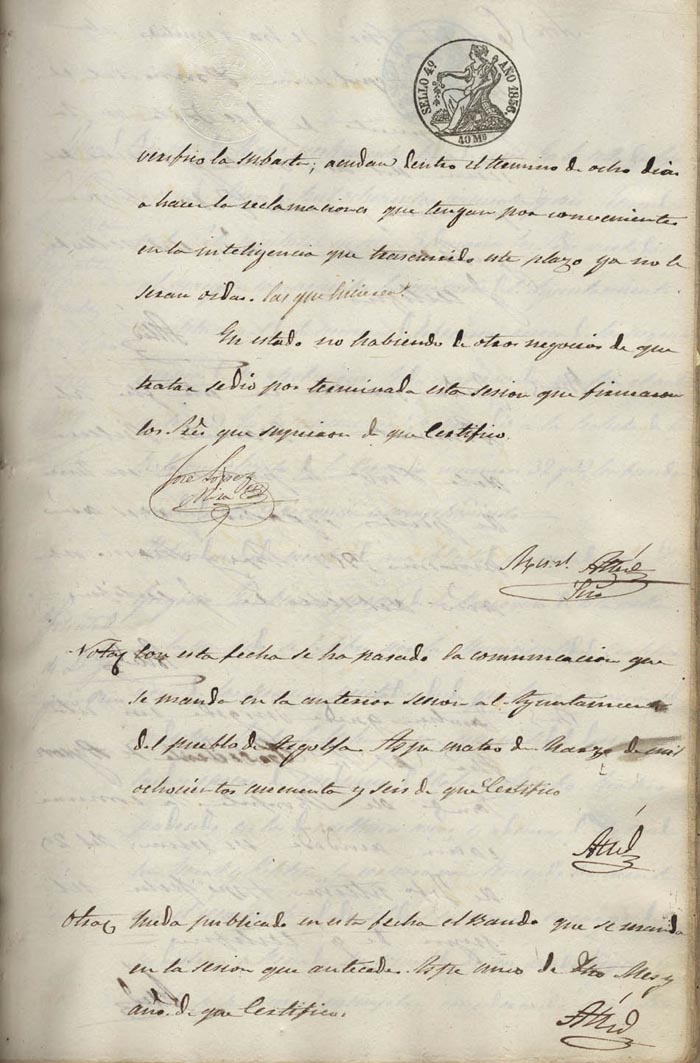 SELLO 4º AÑO 1856.
40 Ms
verifico la subasta; acudan dentro el termino de ocho dias
a hacer la reclamaciones que tengan por convenientes
en la inteligencia que trascurrido este plazo ya no le
seran oidas las que hiciesen.
En estado no habiendo de otros negocios de que
tratar se dió por terminada esta sesion que firmaron
los Sres que supieron de que Certifico.
José Lopez
Nota Con esta fecha se ha pasado la comunicacion que
se manda en la anterior sesion al Ayuntamiento
del pueblo de Aspe cuatro de Marzo de mil
ochocientos cincuenta y seis de que Certifico
Otra Queda publicado en esta fecha el Bando que se manda
en la sesion que antecede Aspe cinco de dho Mes y
año de que Certifico.